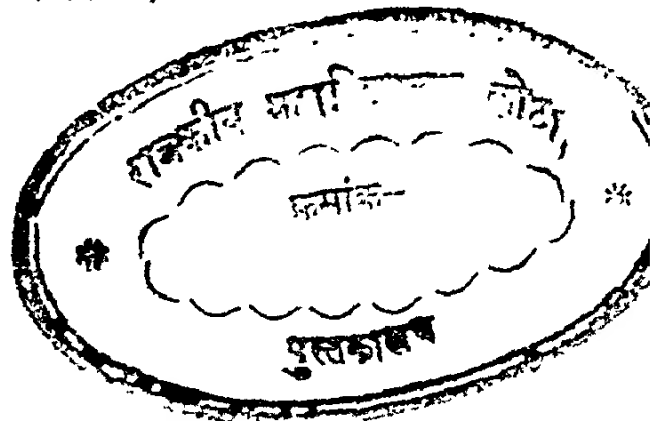 राजकीय कोटा,
क्रमांक-
पुस्तकालय